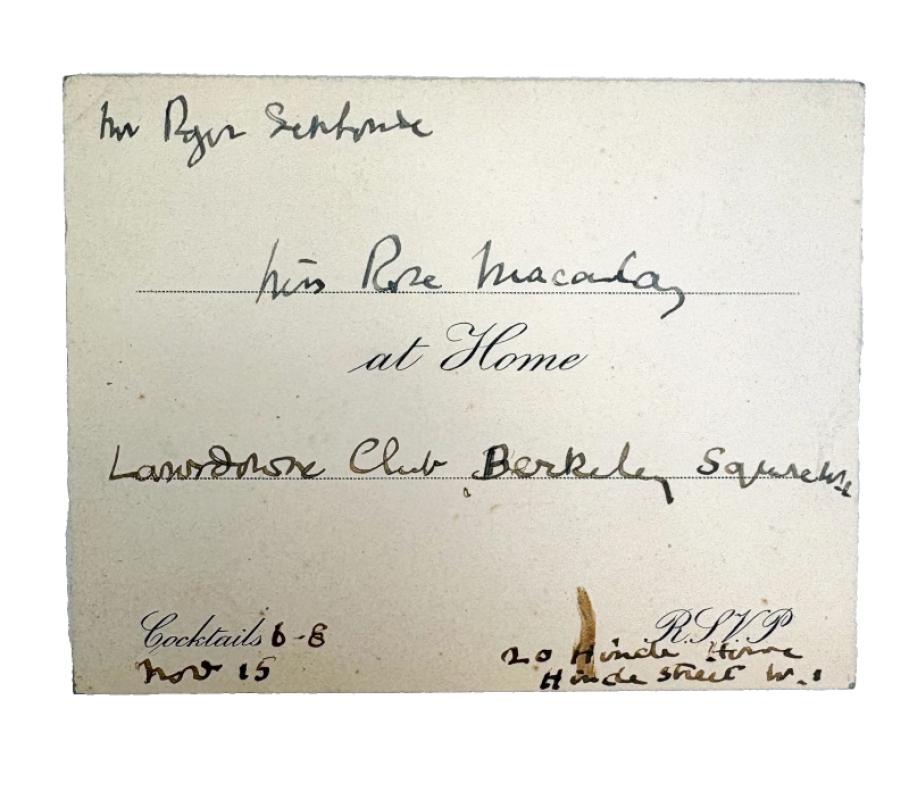 Mr Roger Senhouse
Miss Rose Macaulay
at Home
Lansdowne Club Berkeley Square W1
Cocktails 6-8
RSVP
Nov 15
20 Hinde House
Hinde Street W.1